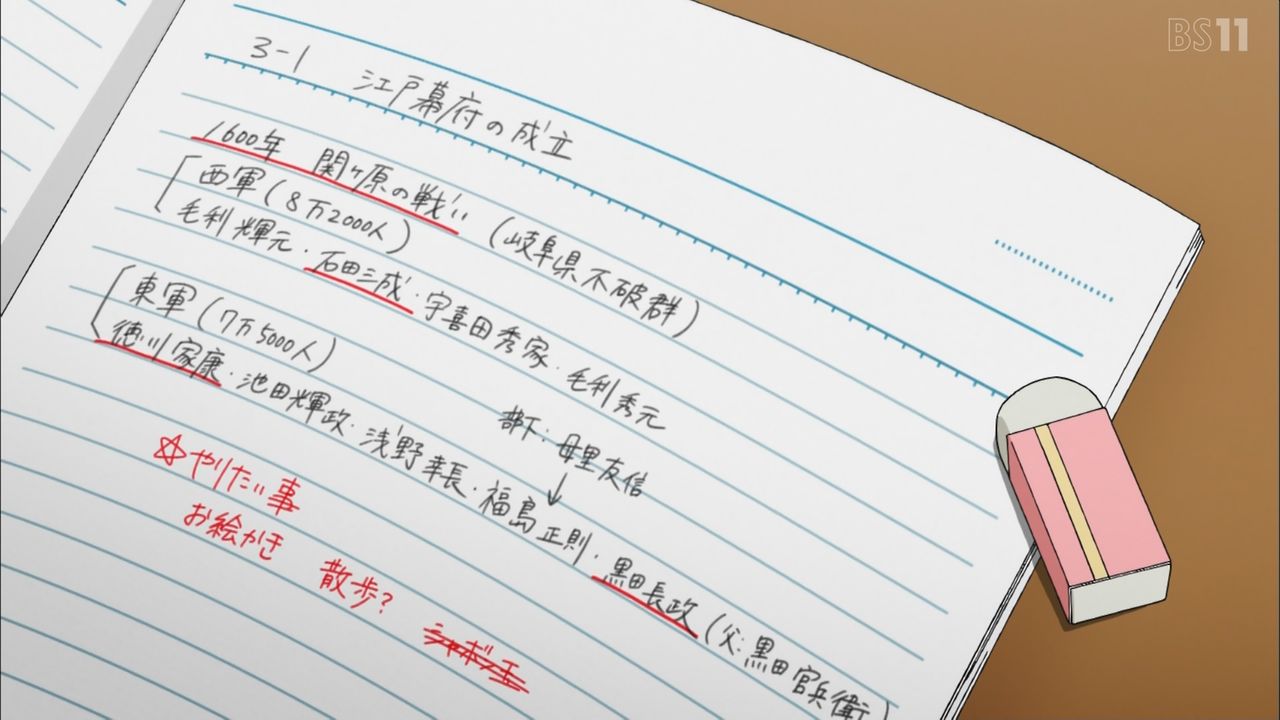 BS11
3-1 江戸幕府の成立
1600年 関ヶ原の戦い (岐阜県不破群)
西軍(8万2000人)
毛利輝元・石田三成・宇喜田秀家・毛利秀元
東軍(7万5000人)
部下:母里友信
↓
徳川家康・池田輝政・浅野幸長・福島正則・黒田長政(父:黒田官兵衛)
☆やりたい事
お絵かき 散歩? シャボン玉